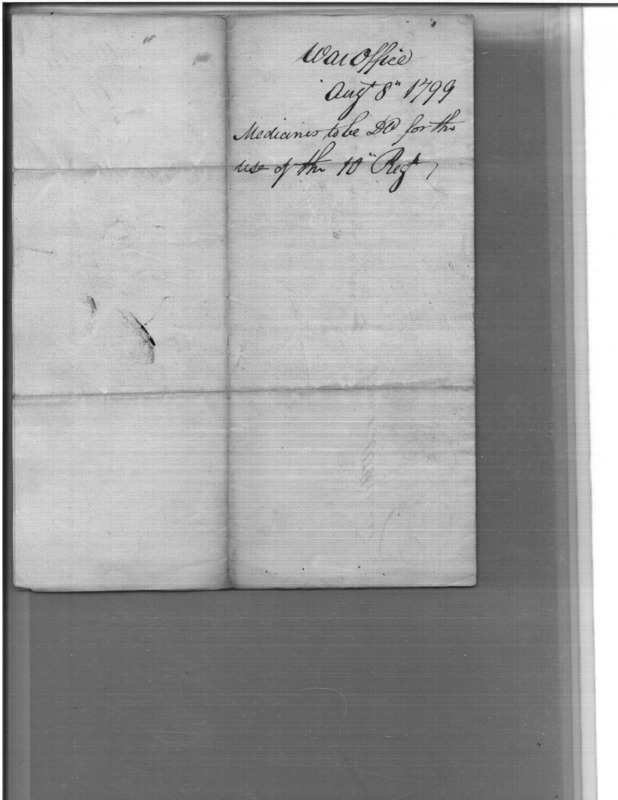 War Office
Augt 8th 1799
Medicines to be DD for the
use of the 10th Regt